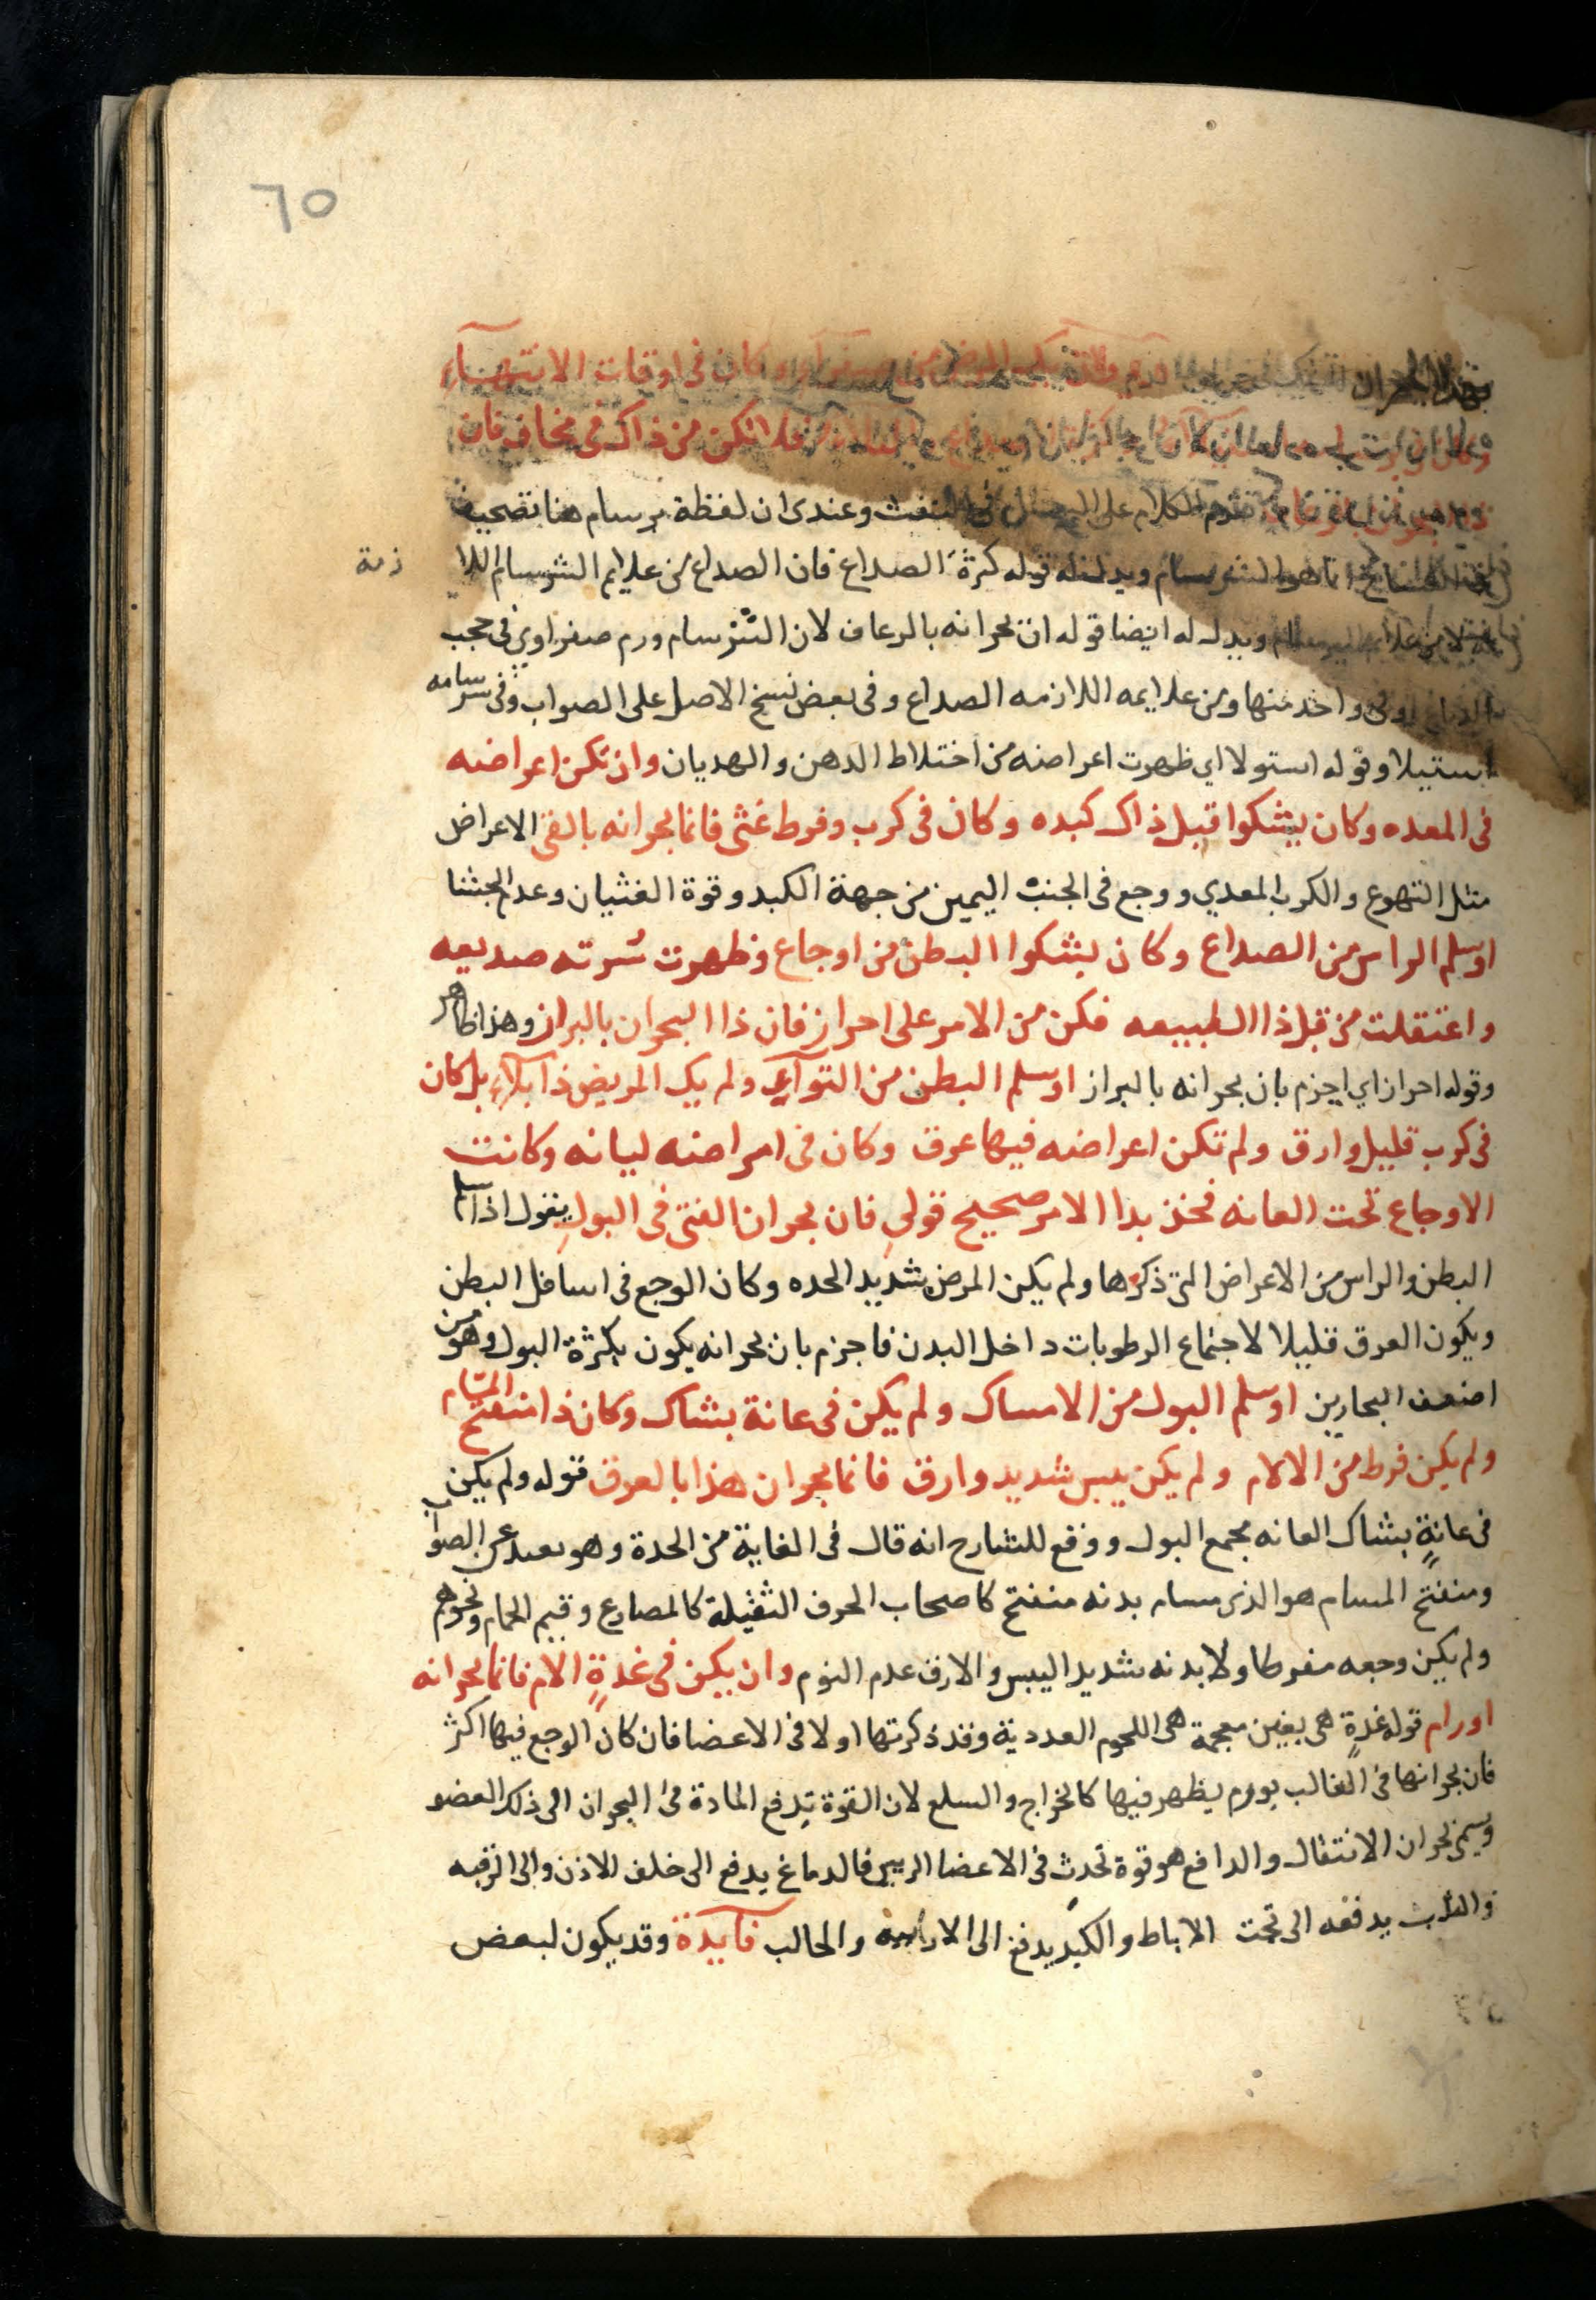 ٦٥
وكان فى اوقات الانتهآءِ
فلا تكن من ذاك فى مخاف فان
تقدم الكلام على النفث وعندى ان لفظة برسام هنا تصحيف
انما هو الشرسام ويدل له قوله كثرة الصداع فان الصداع من علايم الشرسام اللا
زمة
ويدل له ايضا قوله ان بحرانه بالرعاف لان الشرسام ورم صفراوي فى حجب
واحد منها ومن علايمه اللازمه الصداع وفى بعض نسخ الاصل على الصواب وفى سرسامه
استيلا وقوله استولا اي ظهرت اعراضه من اختلاط الدهن والهديان وان تكن اعراضه
فى المعده وكان يشكوا قبل ذاك كبده وكان فى كرب وفرط غثى فانما بحرانه بالقى الاعراض
مثل التهوع والكرب المعدي ووجع فى الجنب اليمين من جهة الكبد وقوة الغثيان وعدم الجشا
او سلم الراس من الصداع وكان يشكوا البطن من اوجاع وظهرت سرته صديعه
واعتقلت من قبل ذا الطبيعه فكن من الامر على احراز فان ذا البحران بالبراز وهذا ظاهر
وقوله احراز اي اجزم بان بحرانه بالبراز او سلم البطن من التوآءِ ولم يك المريض ذا بلاءِ بل كان
فى كرب قليل وارق ولم تكن اعراضه فيها عرق وكان فى امراضه ليانه وكانت
الاوجاع تحت العانه فخذ بدا الامر صحيح قولي فان بحران الفتى فى البولِ يقول اذا سلم
البطن والراس من الاعراض التى ذكرها ولم يكن المرض شديد الحده وكان الوجع فى اسافل البطن
ويكون العرق قليلا لاجتماع الرطوبات داخل البدن فاجزم بان بحرانه يكون بكثرة البول وهو من
اضعف البحارين او سلم البول من الامساك ولم يكن فى عانة بشاك وكان ذا منفتح المسام
ولم يكن فرط من الالام ولم يكن يبس شديد وارق فانما بحران هذا بالعرق قوله ولم يكن
فى عانةٍ بشاك العانه مجمع البول ووقع للشارح انه قال فى الغاية من الحدة وهو بعيد عن الصواب
ومنفتح المسام هو الذى مسام بدنه منفتح كاصحاب الحرف الثقيلة كالمصارع وقيم الحمام ونحوهم
ولم يكن وجعه مفرطا ولا بدنه شديد اليبس والارق عدم النوم وان يكن فى غدةٍ الام فانما بحرانه
اورام قوله غدةٍ هى بغين معجمة هى اللحوم العددية وقد ذكرتها اولا فى الاعضا فان كان الوجع فيها اكثر
فان بحرانها فى الغالب بورم يظهر فيها كالخراج والسلع لان القوة تدفع المادة فى البحران الى ذلك العضو
ويسمى بحران الانتقال والدافع هو قوة تحدث فى الاعضا الرييس فالدماغ يدفع الى خلف الاذن والى الرقبه
والقلب يدفعه الى تحت الاباط والكبد يدفع الى الاربيه والحالب فآيدة وقد يكون لبعض